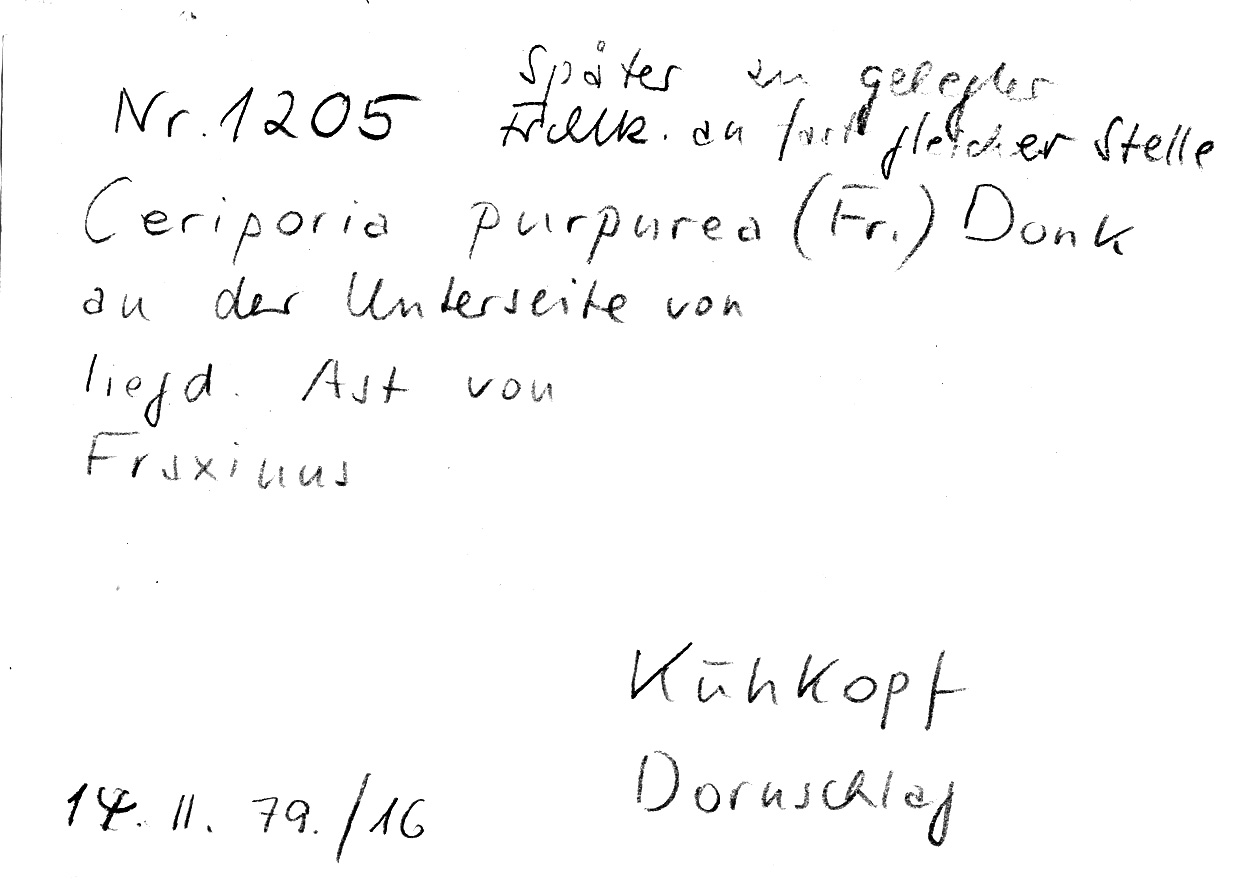 Später an gelegter
Nr. 1205 Frchtk. an fast gleicher Stelle
Ceriporia purpurea (Fr.) Donk
an der Unterseite von
liegd. Ast von
Fraxinus
Kühkopf
Dornschlag
14. II. 79. /16